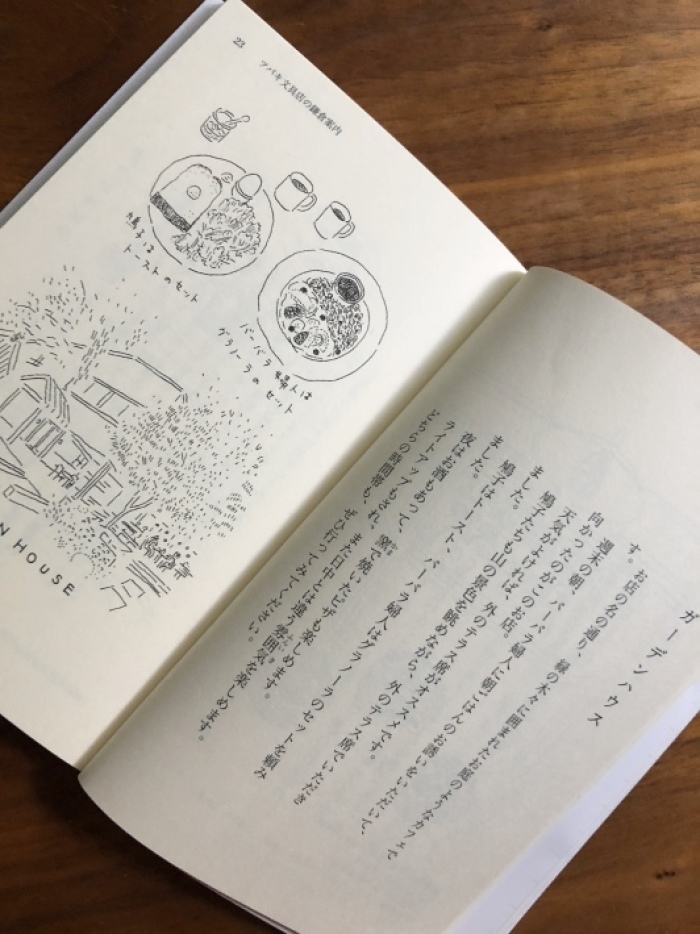 ガーデンハウス
お店の名の通り、緑の木々に囲まれたお庭のようなカフェで
す。
週末の朝、バーバラ婦人に朝ごはんのお誘いをいただいて、
向かったのがこのお店。
天気がよければ、外のテラス席がオススメです。
鳩子たちも山の景色を眺めながら、外のテラス席でいただき
ました。
鳩子はトースト、バーバラ婦人はグラノーラのセットを頼み
ました。
夜はお酒もあって、窯で焼いたピザも楽しめます。
かま
ライトアップもされ、また日中とは違う雰囲気を楽しめます。
ふんいき
どちらの時間帯も、ぜひ行ってみてください。
バーバラ婦人は
グラノーラのセット
鳩子は
トーストのセット
N HOUSE
ツバキ文具店の鎌倉案内
23